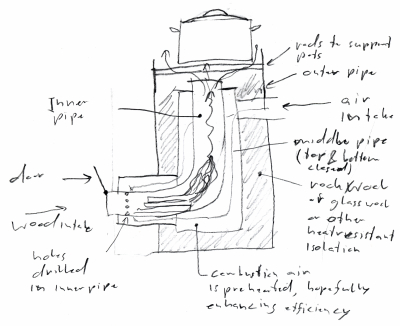 rods to support
pots
outer pipe
Inner
pipe
air
intake
middle pipe
(top & bottom
closed)
door
rockwool
of glasswool
or other
heatresistant
isolation
wood intake
holes
drilled
in innerpipe
combustion air
is preheated, hopefully
enhancing efficiency